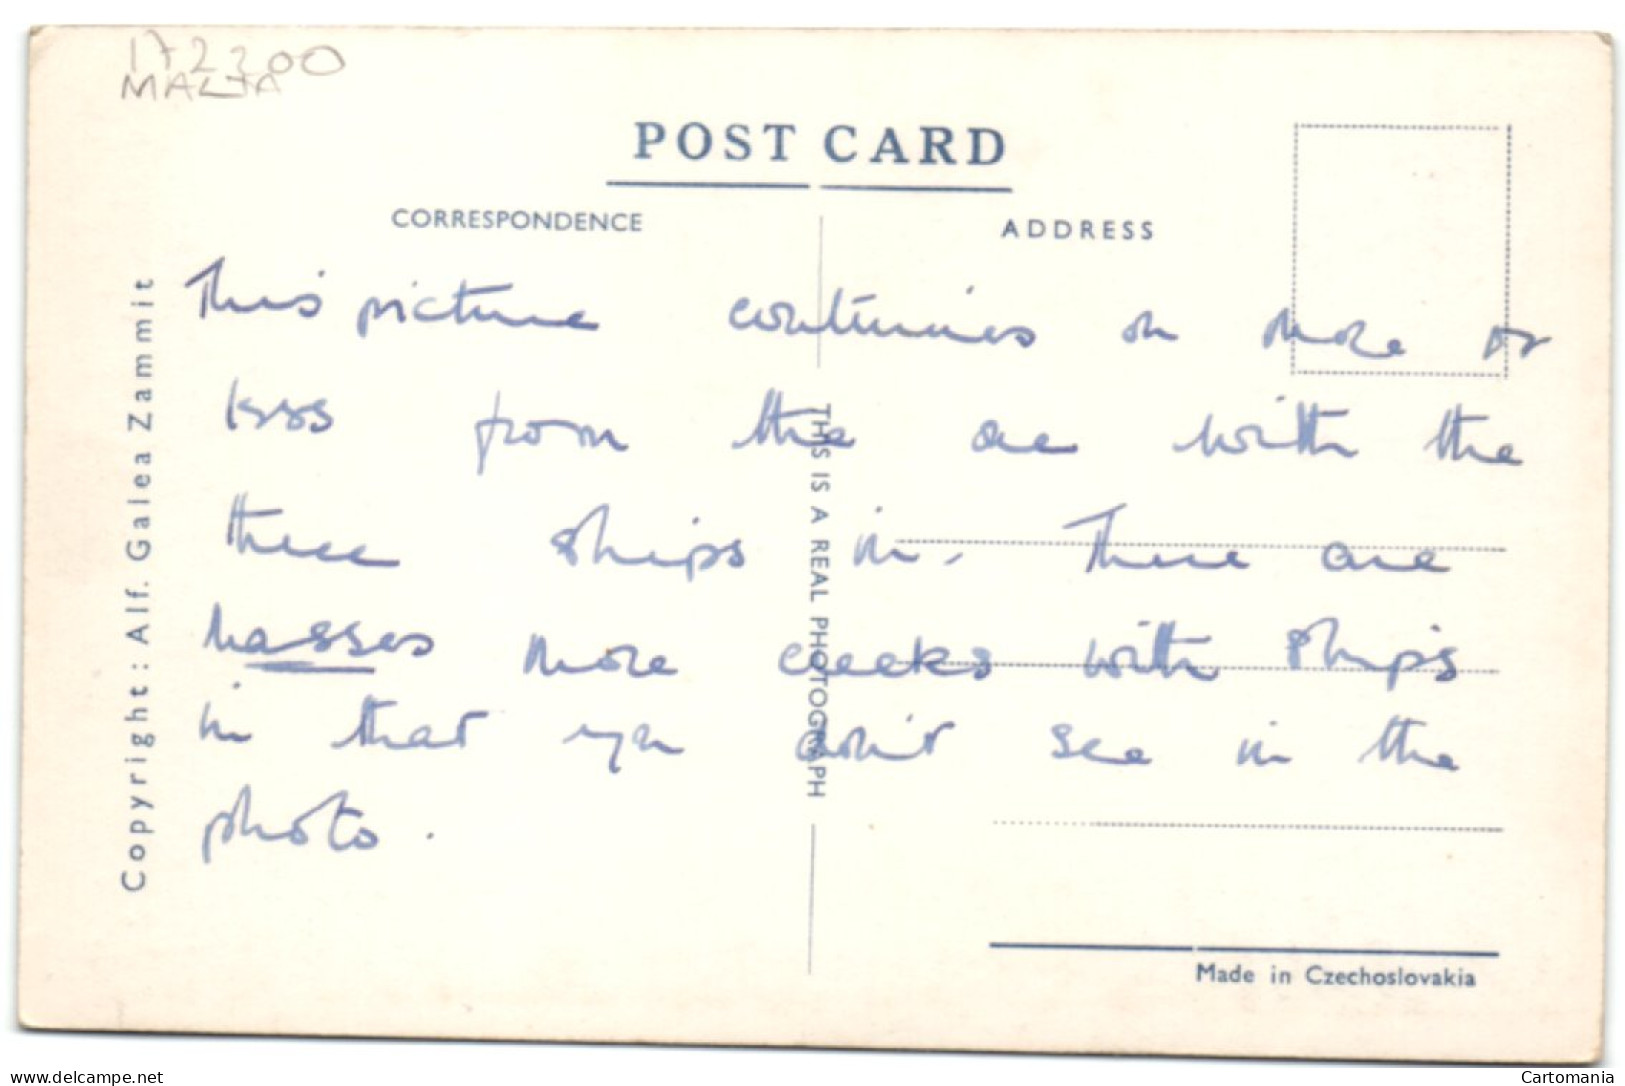 172300
MALTA
POST CARD
CORRESPONDENCE
ADDRESS
This picture continues on more or
less from the one with the
three ships in. There are
masses more creeks with ships
in that you don't see in the
photo.
Copyright: Alf. Galea Zammit
THIS IS A REAL PHOTOGRAPH
Made in Czechoslovakia
www.delcampe.net
Cartomania